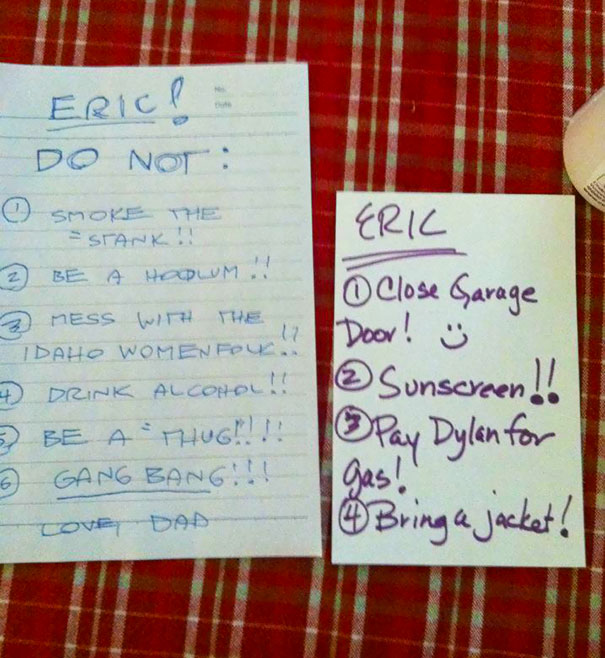 ERIC!
DO NOT:
① SMOKE THE
"STANK!!
② BE A HOODLUM!!
③ MESS WITH THE
IDAHO WOMENFOLK!!
④ DRINK ALCOHOL!!
⑤ BE A "THUG"!!!
⑥ GANG BANG!!!
LOVE, DAD
ERIC
① Close Garage
Door! :)
② Sunscreen!!
③ Pay Dylan for
gas!
④ Bring a jacket!